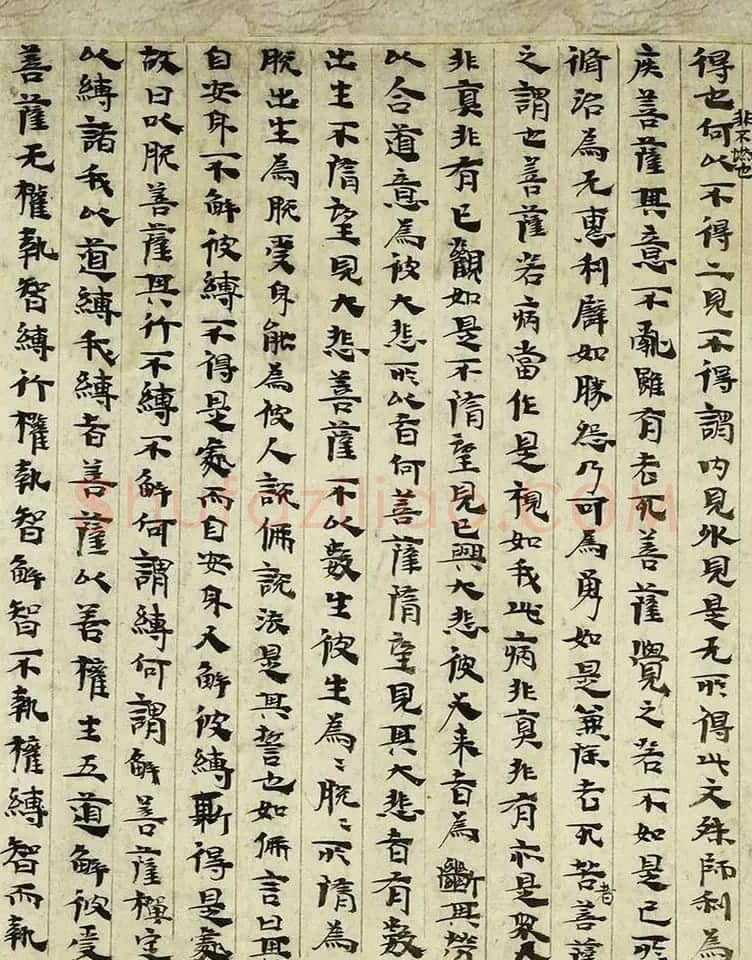 得也何以不得二見不得謂內見外見是无所得此文殊師利為
非不然也
疾菩薩其意不亂雖有老死菩薩覺之若不如是已所
脩治為无惠利譬如勝怨乃可為勇如是兼除老死苦者菩薩
之謂也菩薩若病當作是視如我此病非真非有亦是眾人
非真非有已觀如是不隋望見已興大悲彼為來者為斷其勞
以合道意為彼大悲所以者何菩薩隋望見其大悲者有數
出生不隋望見大悲菩薩不以數生彼生為〻脫〻所隋為
脫出生為脫受身能為彼人說佛說法是其誓也如佛言曰其
自安身不解彼縛不得是處而自安身又解彼縛斯得是處
故曰以脫菩薩其行不縛不解何謂縛何謂解菩薩禪定
以縛諸我以道縛我縛者菩薩以善權生五道解彼受
菩薩无權執智縛行權執智解智不執權縛智而執
Shufaziliao.COM